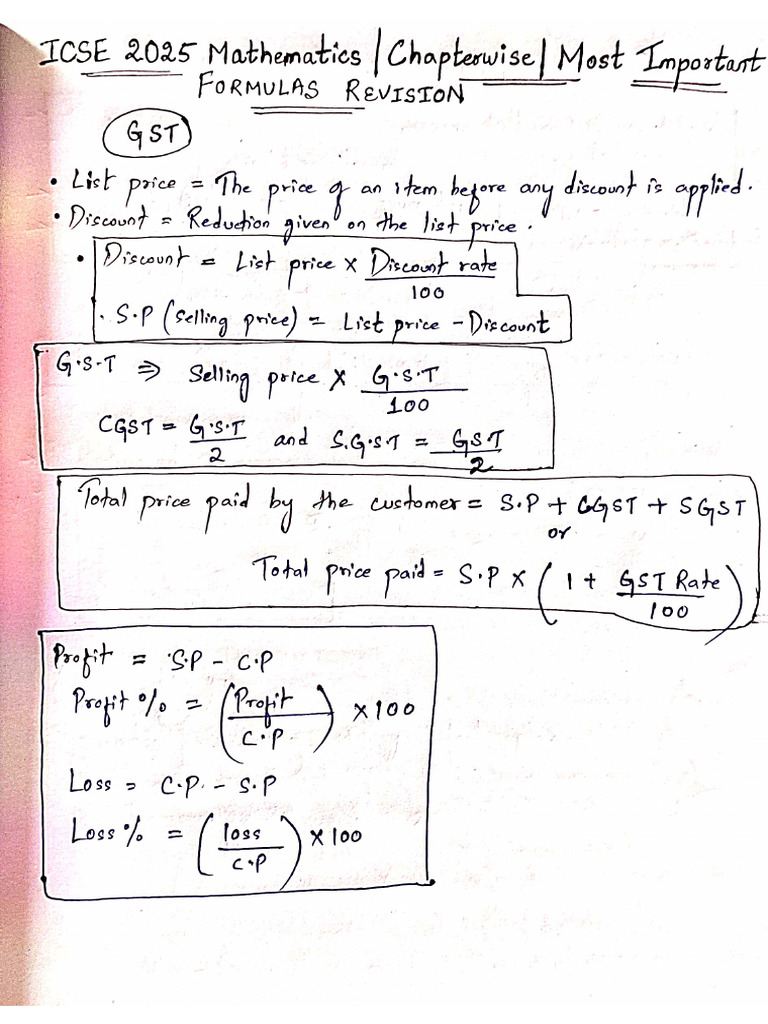 ICSE 2025 Mathematics | Chapterwise | Most Important
FORMULAS REVISION
GST
• List price = The price of an item before any discount is applied.
• Discount = Reduction given on the list price.
• Discount = List price × Discount rate / 100
. S.P (selling price) = List price - Discount
G.S.T ⇒ Selling price × G.S.T / 100
CGST = G.S.T / 2 and S.G.S.T = GST / 2
Total price paid by the customer = S.P + CGST + SGST
or
Total price paid = S.P × (1 + GST Rate / 100)
Profit = S.P - C.P
Profit % = (Profit / C.P) × 100
Loss = C.P. - S.P
Loss % = (loss / C.P) × 100